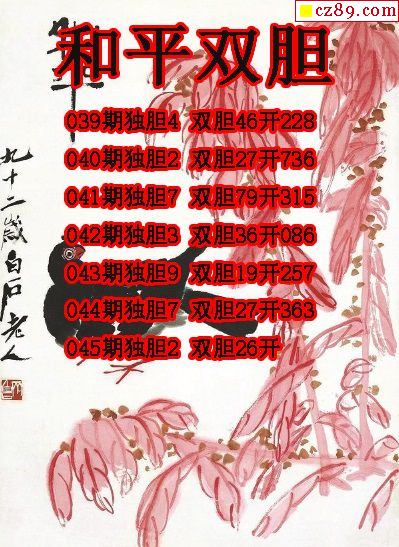 cz89.com
和平双胆
039期独胆4 双胆46开228
040期独胆2 双胆27开736
041期独胆7 双胆79开315
042期独胆3 双胆36开086
043期独胆9 双胆19开257
044期独胆7 双胆27开363
045期独胆2 双胆26开
九十二岁白石老人